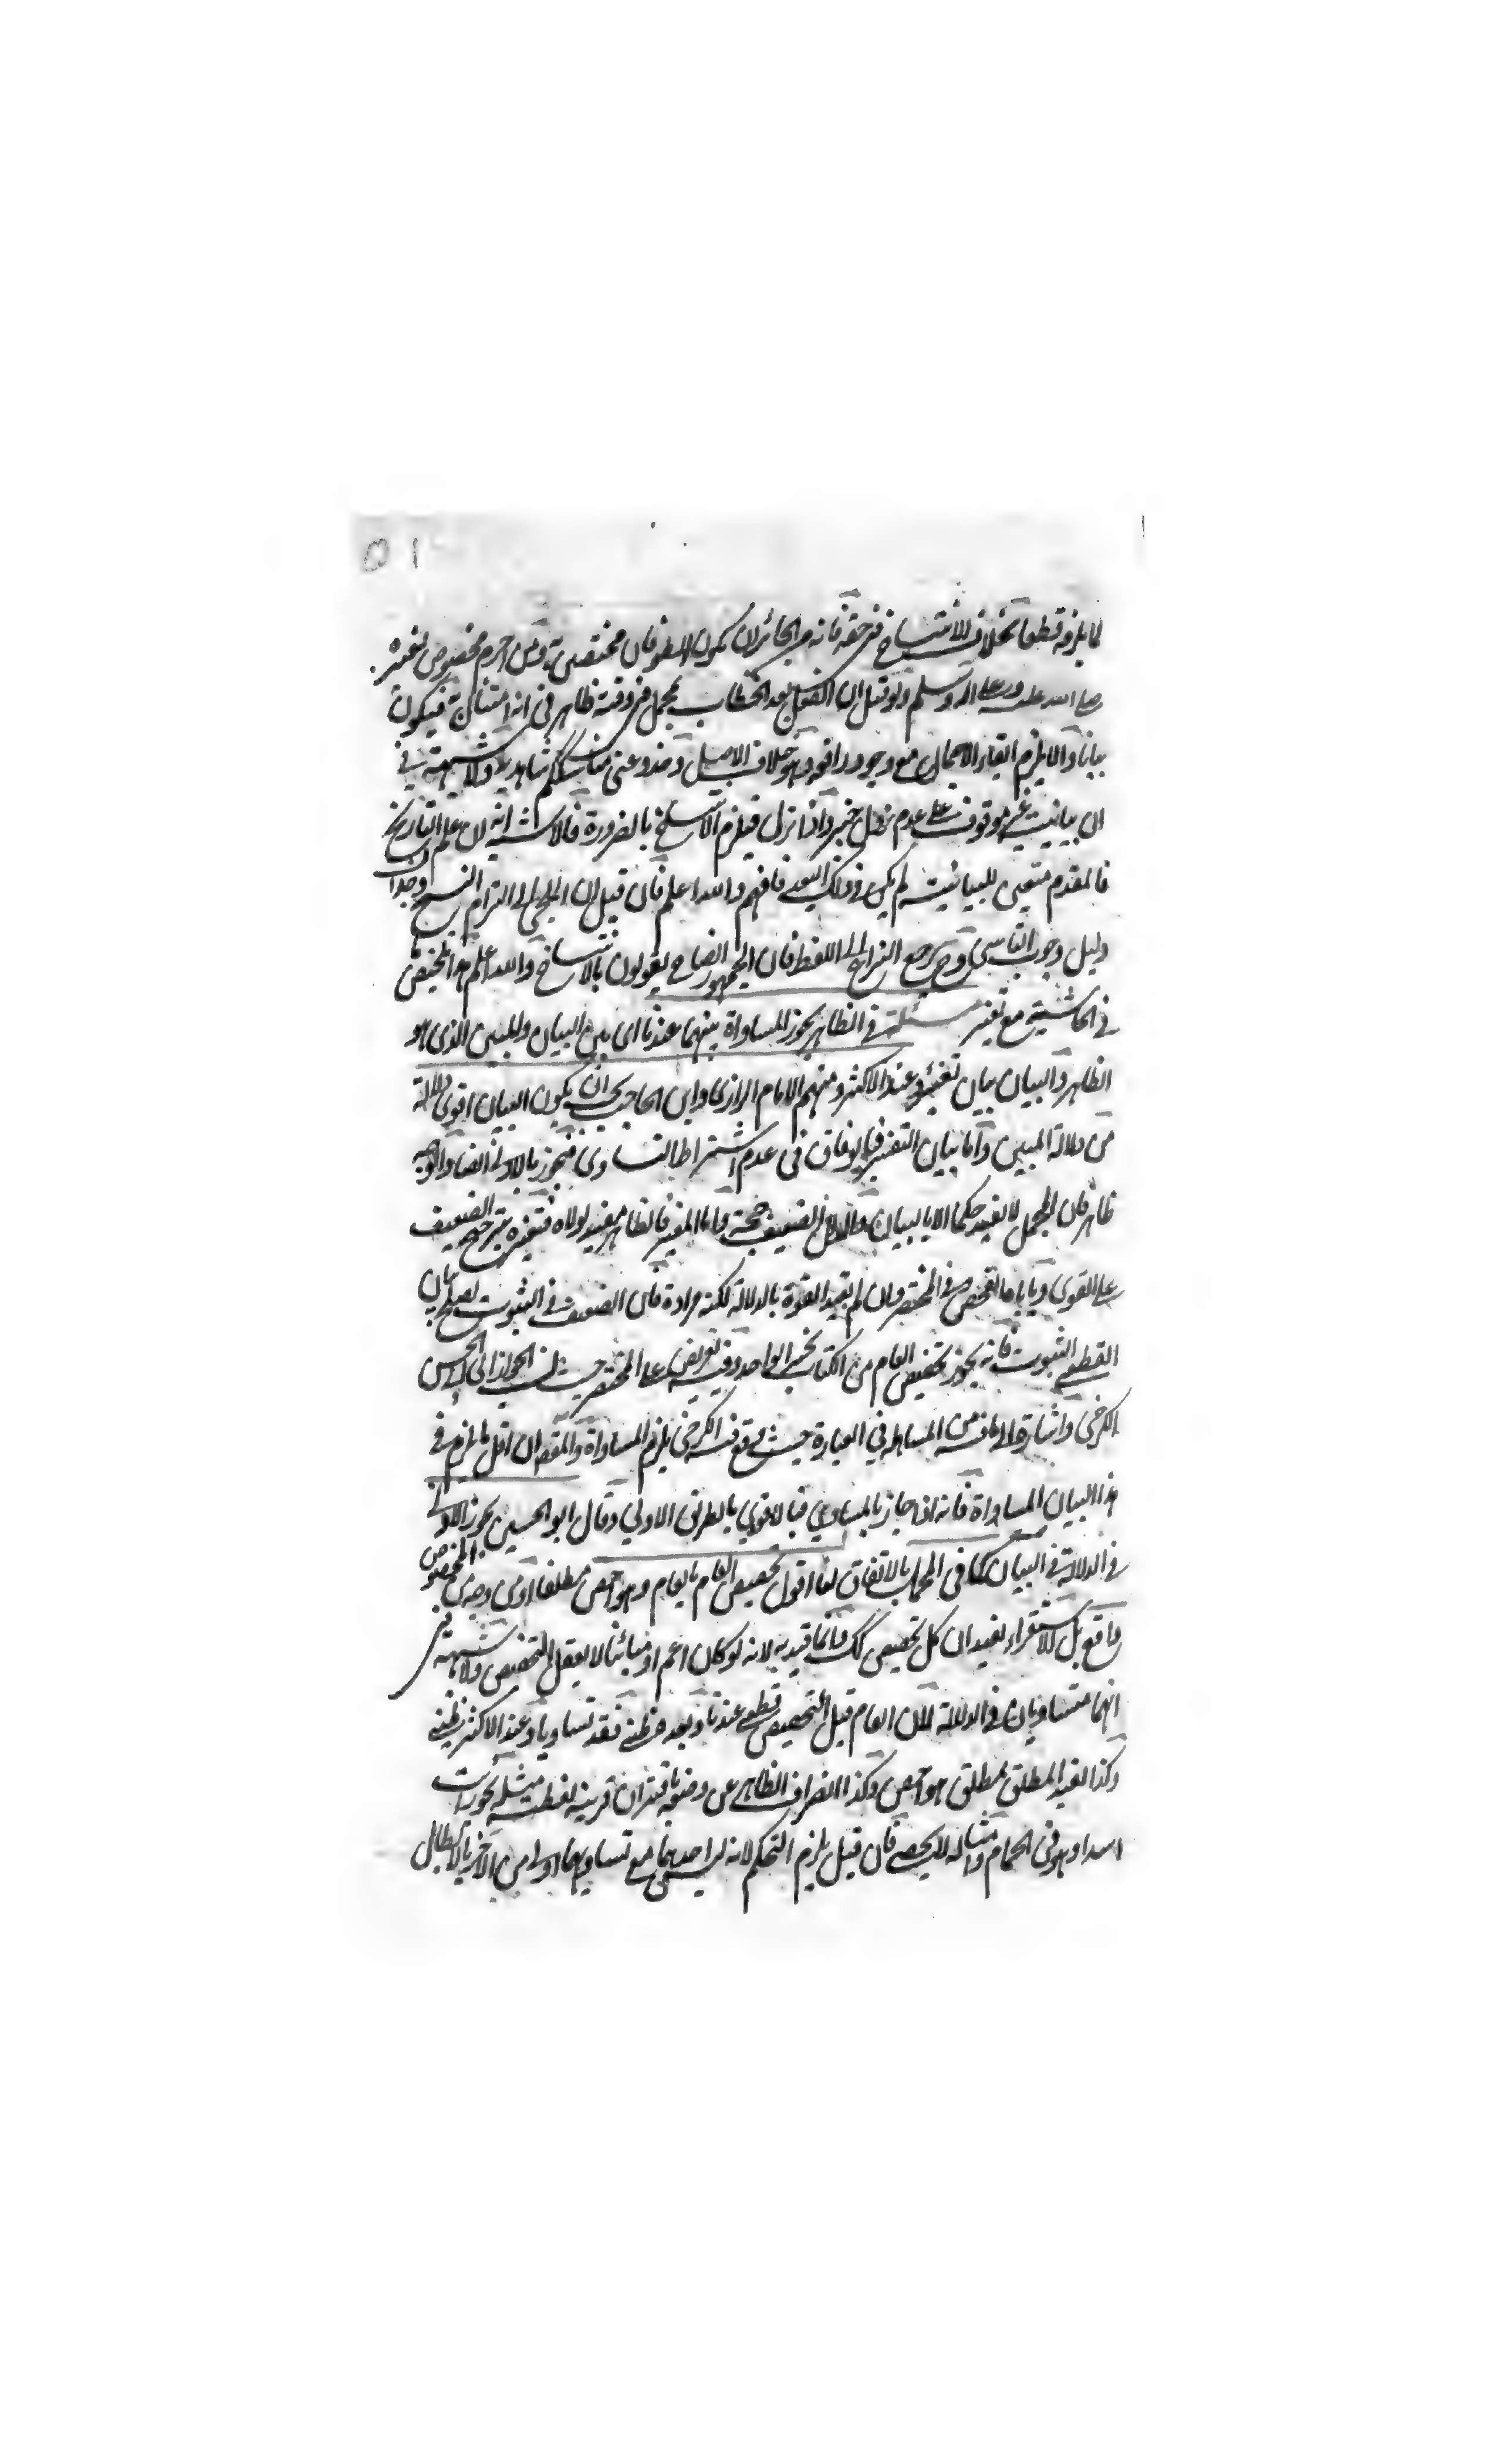 لما يلزمه قطعا بخلاف الانتساخ في حقه فانه من الجائز ان يكون الطوفان مختصين به ومن احرم مخصوص لغيره
صلى الله عليه وعلى اله وسلم ولو قيل ان الفعل بعد الخطاب بمجمل في وقته ظاهر في انه امتثال فيكون
بيانا والا يلزم ابقاء الاجمال مع وجود رافعه وهو خلاف الاصل وخذوا عني مناسككم شاهد به ولا شبهة في
ان بيانيته غير موقوف على عدم نزول خبر واذا نزل فيلزم الانتساخ بالضرورة فالاشبه انه ان علم التاريخ
فالمقدم متعين للبيانية لم يكن في ذلك البعد فافهم والله اعلم فان قيل ان الملجئ الى التزام النسخ وجدان
دليل وجوب التاسي وح يرجع النزاع الى اللفظ فان الجمهور ايضا ح يقولون بالانتساخ والله اعلم هذا تلخيص ما
في الحاشية مع تغيير مسئلة في الظاهر يجوز المساواة بينهما عندنا اى بين البيان والمبين الذى هو
الظاهر والبيان بيان تغيير وعند الاكثر ومنهم الامام الرازى وابن الحاجب يجب ان يكون البيان اقوى دلالة
من دلالة المبين واما بيان التفسير فبالوفاق في عدم اشتراط التساوى فيجوز بالادنى ايضا والوجه
ظاهر فان المجمل لا يفيد حكما الا بالبيان والدال الضعيف حجة واما المغير فالظاهر مفيد لولاه فتغييره ترجيح الضعيف
على القوى وما فى المختصر وان لم يقيد القوة بالدلالة لكنه مراده فان الضعيف في الثبوت يصلح بيان
القطعي الثبوت فانه يجوز تخصيص العام من الكتاب بخبر الواحد وفيه تعريض على المختصر حيث نسب الجواز الى ابى الحسن
الكرخي واشارة الى ما فيه من المساهلة في العبارة حيث وقع فيه الكرخى يلزم المساواة والمقصود ان اقل ما يلزم في
هذا البيان المساواة فانه اذا جاز بالمساوي فبالاقوي بالطريق الاولي وقال ابو الحسين يجوز الادنى
في الدلالة في البيان كما في المجمل بالاتفاق لنا اقول تخصيص العام بالعام وهو اخص مطلقا او من وجه من المخصوص
واقع بل الاستقراء يفيد ان كل تخصيص كك وانما قيد به لانه لو كان اعم او مبائنا لا يعقل التخصيص ولا شبهة في
انهما متساويان في الدلالة لان العام قبل التخصيص قطعي عندنا وبعده ظني فقد تساويا وعند الاكثر ظني
وكذا تقييد المطلق بمطلق هو اخص وكذا انصراف الظاهر عن وضعه باقتران قرينة لفظية مثله نحو رأيت
اسدا وهو في الحمام وامثاله لا يحصى فان قيل يلزم التحكم لانه ليس احدهما مع تساويهما اولى من الاخر بالابطال